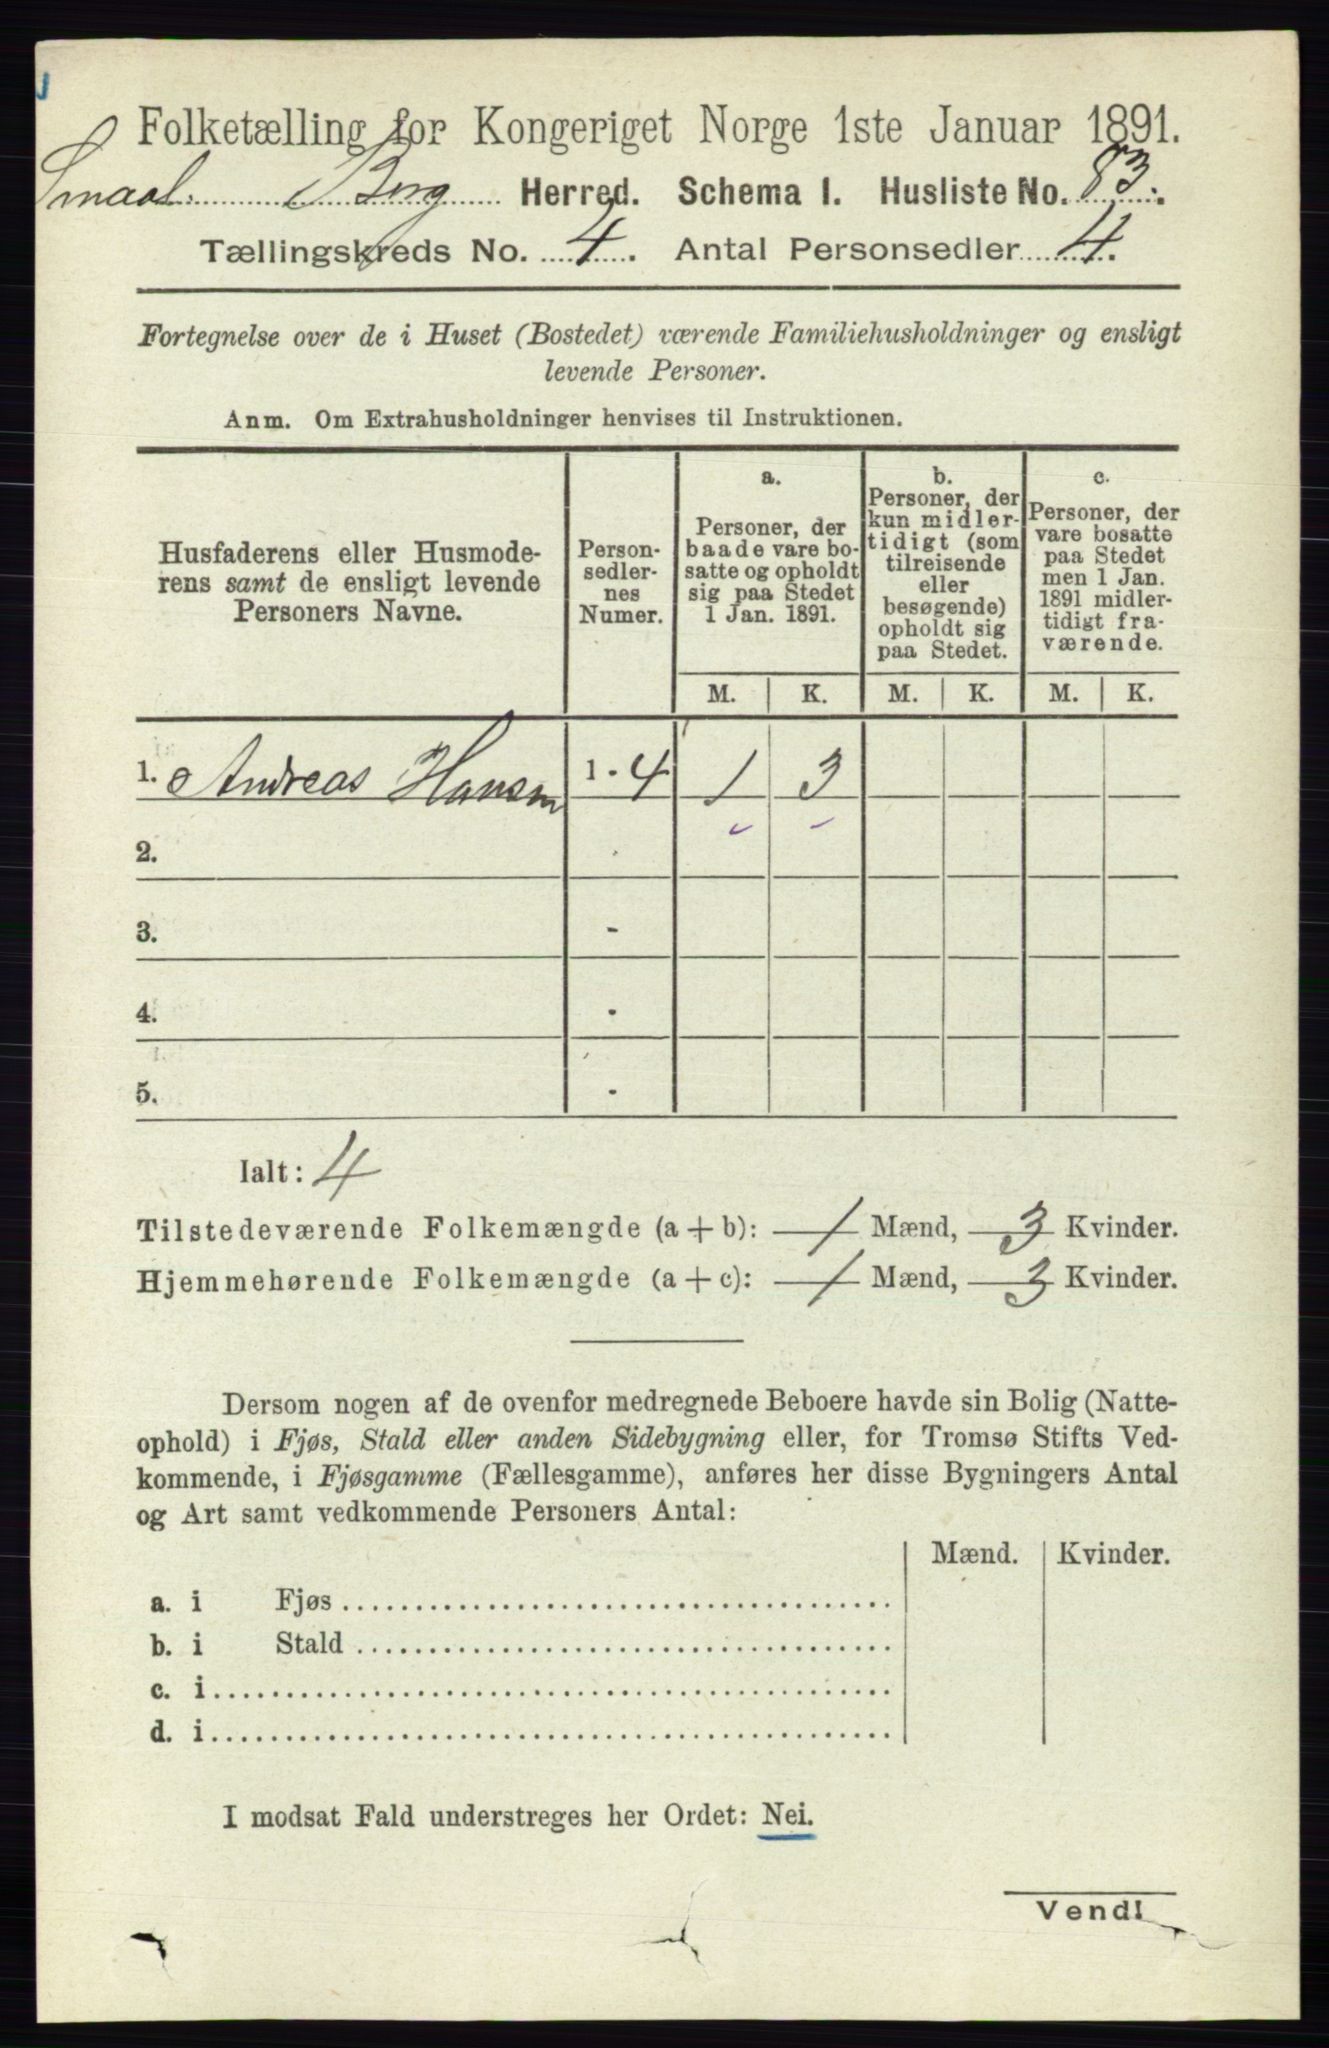 Folketælling for Kongeriget Norge 1ste Januar 1891.
Smaal. Berg Herred. Schema I. Husliste No. 83.
Tællingskreds No. 4. Antal Personsedler 4.
Fortegnelse over de i Huset (Bostedet) værende Familiehusholdninger og ensligt
levende Personer.
Anm. Om Extrahusholdninger henvises til Instruktionen.
Husfaderens eller Husmode-
rens samt de ensligt levende
Personers Navne.
Person-
sedler-
nes
Numer.
a.
Personer, der
baade vare bo-
satte og opholdt
sig paa Stedet
1 Jan. 1891.
b.
Personer, der
kun midler-
tidigt (som
tilreisende
eller
besøgende)
opholdt sig
paa Stedet.
c.
Personer, der
vare bosatte
paa Stedet
men 1 Jan.
1891 midler-
tidigt fra-
værende.
M. K. M. K. M. K.
1. Andreas Hansen 1 - 4 1 3
2.
3. -
4. -
5. -
Ialt: 4
Tilstedeværende Folkemængde (a + b): 1 Mænd, 3 Kvinder.
Hjemmehørende Folkemængde (a + c): 1 Mænd, 3 Kvinder.
Dersom nogen af de ovenfor medregnede Beboere havde sin Bolig (Natte-
ophold) i Fjøs, Stald eller anden Sidebygning eller, for Tromsø Stifts Ved-
kommende, i Fjøsgamme (Fællesgamme), anføres her disse Bygningers Antal
og Art samt vedkommende Personers Antal:
Mænd. Kvinder.
a. i Fjøs
b. i Stald
c. i
d. i
I modsat Fald understreges her Ordet: Nei.
Vend!